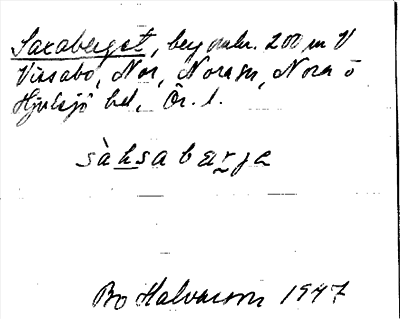 Saxaberget, beg omkr. 200 m V
Vissabo, Nor, Nora sn, Nora o
Hjulsjö bd, Ör. l.
sàksabarja
Bo Halvarson 1947